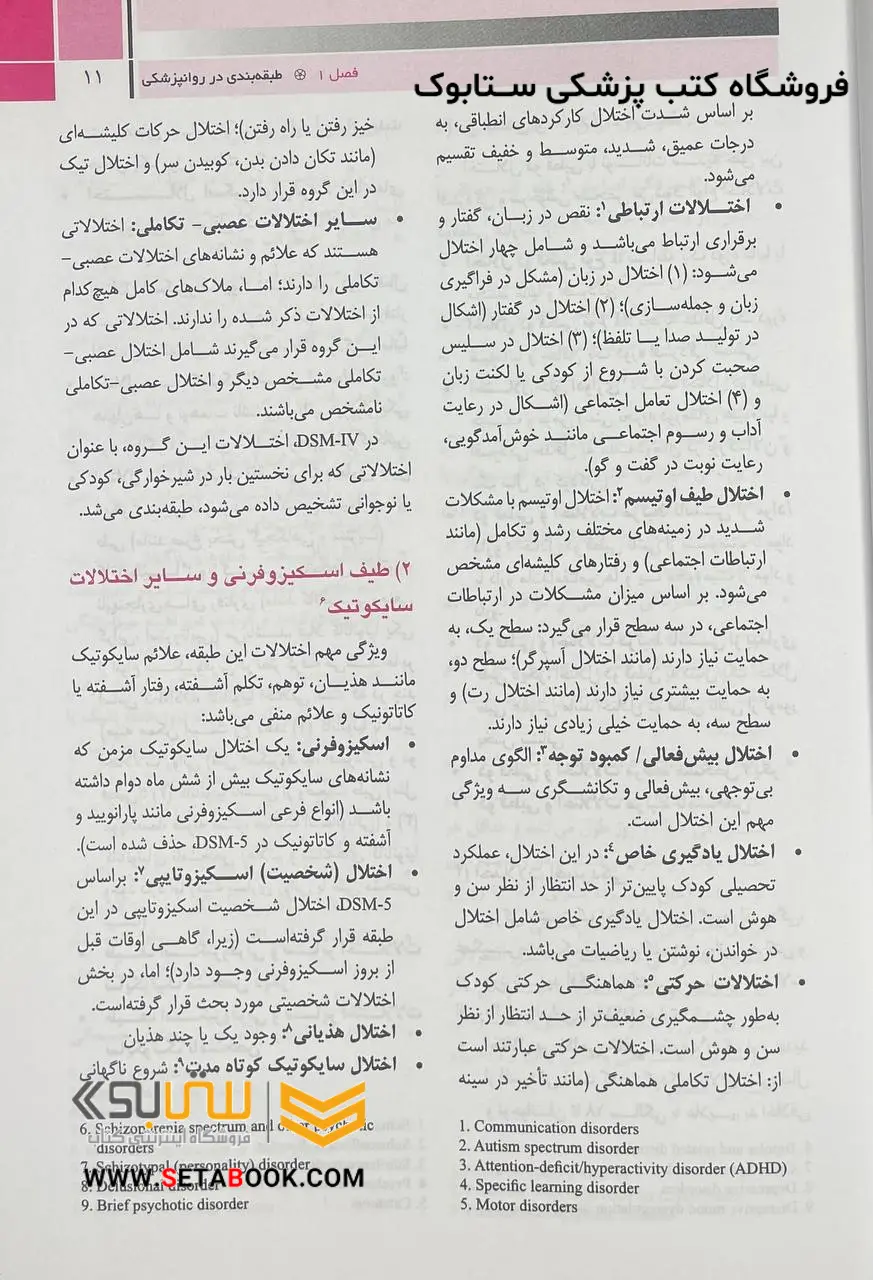 فروشگاه کتب پزشکی ستابوک
فصل ۱ طبقه‌بندی در روانپزشکی ۱۱
بر اساس شدت اختلال کارکردهای انطباقی، به
درجات عمیق، شدید، متوسط و خفیف تقسیم
می‌شود.
• اختلالات ارتباطی۱: نقص در زبان، گفتار و
برقراری ارتباط می‌باشد و شامل چهار اختلال
می‌شود: (۱) اختلال در زبان (مشکل در فراگیری
زبان و جمله‌سازی)؛ (۲) اختلال در گفتار (اشکال
در تولید صدا یا تلفظ)؛ (۳) اختلال در سلیس
صحبت کردن با شروع از کودکی یا لکنت زبان
و (۴) اختلال تعامل اجتماعی (اشکال در رعایت
آداب و رسوم اجتماعی مانند خوش‌آمدگویی،
رعایت نوبت در گفت و گو).
• اختلال طیف اوتیسم۲: اختلال اوتیسم با مشکلات
شدید در زمینه‌های مختلف رشد و تکامل (مانند
ارتباطات اجتماعی) و رفتارهای کلیشه‌ای مشخص
می‌شود. بر اساس میزان مشکلات در ارتباطات
اجتماعی، در سه سطح قرار می‌گیرد: سطح یک، به
حمایت نیاز دارند (مانند اختلال آسپرگر)؛ سطح دو،
به حمایت بیشتری نیاز دارند (مانند اختلال رت) و
سطح سه، به حمایت خیلی زیادی نیاز دارند.
• اختلال بیش‌فعالی/ کمبود توجه۳: الگوی مداوم
بی‌توجهی، بیش‌فعالی و تکانشگری سه ویژگی
مهم این اختلال است.
• اختلال یادگیری خاص۴: در این اختلال، عملکرد
تحصیلی کودک پایین‌تر از حد انتظار از نظر سن و
هوش است. اختلال یادگیری خاص شامل اختلال
در خواندن، نوشتن یا ریاضیات می‌باشد.
• اختلالات حرکتی۵: هماهنگی حرکتی کودک
به‌طور چشمگیری ضعیف‌تر از حد انتظار از نظر
سن و هوش است. اختلالات حرکتی عبارتند است
از: اختلال تکاملی هماهنگی (مانند تأخیر در سینه
1. Communication disorders
2. Autism spectrum disorder
3. Attention-deficit/hyperactivity disorder (ADHD)
4. Specific learning disorder
5. Motor disorders
خیز رفتن یا راه رفتن)؛ اختلال حرکات کلیشه‌ای
(مانند تکان دادن بدن، کوبیدن سر) و اختلال تیک
در این گروه قرار دارد.
• سایر اختلالات عصبی- تکاملی: اختلالاتی
هستند که علائم و نشانه‌های اختلالات عصبی-
تکاملی را دارند؛ اما، ملاک‌های کامل هیچ‌کدام
از اختلالات ذکر شده را ندارند. اختلالاتی که در
این گروه قرار می‌گیرند شامل اختلال عصبی-
تکاملی مشخص دیگر و اختلال عصبی-تکاملی
نامشخص می‌باشند.
در DSM-IV، اختلالات این گروه، با عنوان
اختلالاتی که برای نخستین بار در شیرخوارگی، کودکی
یا نوجوانی تشخیص داده می‌شود، طبقه‌بندی می‌شد.
۲) طیف اسکیزوفرنی و سایر اختلالات
سایکوتیک۶
ویژگی مهم اختلالات این طبقه، علائم سایکوتیک
مانند هذیان، توهم، تکلم آشفته، رفتار آشفته یا
کاتاتونیک و علائم منفی می‌باشد:
• اسکیزوفرنی: یک اختلال سایکوتیک مزمن که
نشانه‌های سایکوتیک بیش از شش ماه دوام داشته
باشد (انواع فرعی اسکیزوفرنی مانند پارانویید و
آشفته و کاتاتونیک در DSM-5، حذف شده است).
• اختلال (شخصیت) اسکیزوتایپی۷: براساس
DSM-5، اختلال شخصیت اسکیزوتایپی در این
طبقه قرار گرفته‌است (زیرا، گاهی اوقات قبل
از بروز اسکیزوفرنی وجود دارد)؛ اما، در بخش
اختلالات شخصیتی مورد بحث قرار گرفته‌است.
• اختلال هذیانی۸: وجود یک یا چند هذیان
• اختلال سایکوتیک کوتاه مدت۹: شروع ناگهانی
6. Schizophrenia spectrum and other psychotic
disorders
7. Schizotypal (personality) disorder
8. Delusional disorder
9. Brief psychotic disorder
ستابوک
فروشگاه اینترنتی کتاب
WWW.SETABOOK.COM